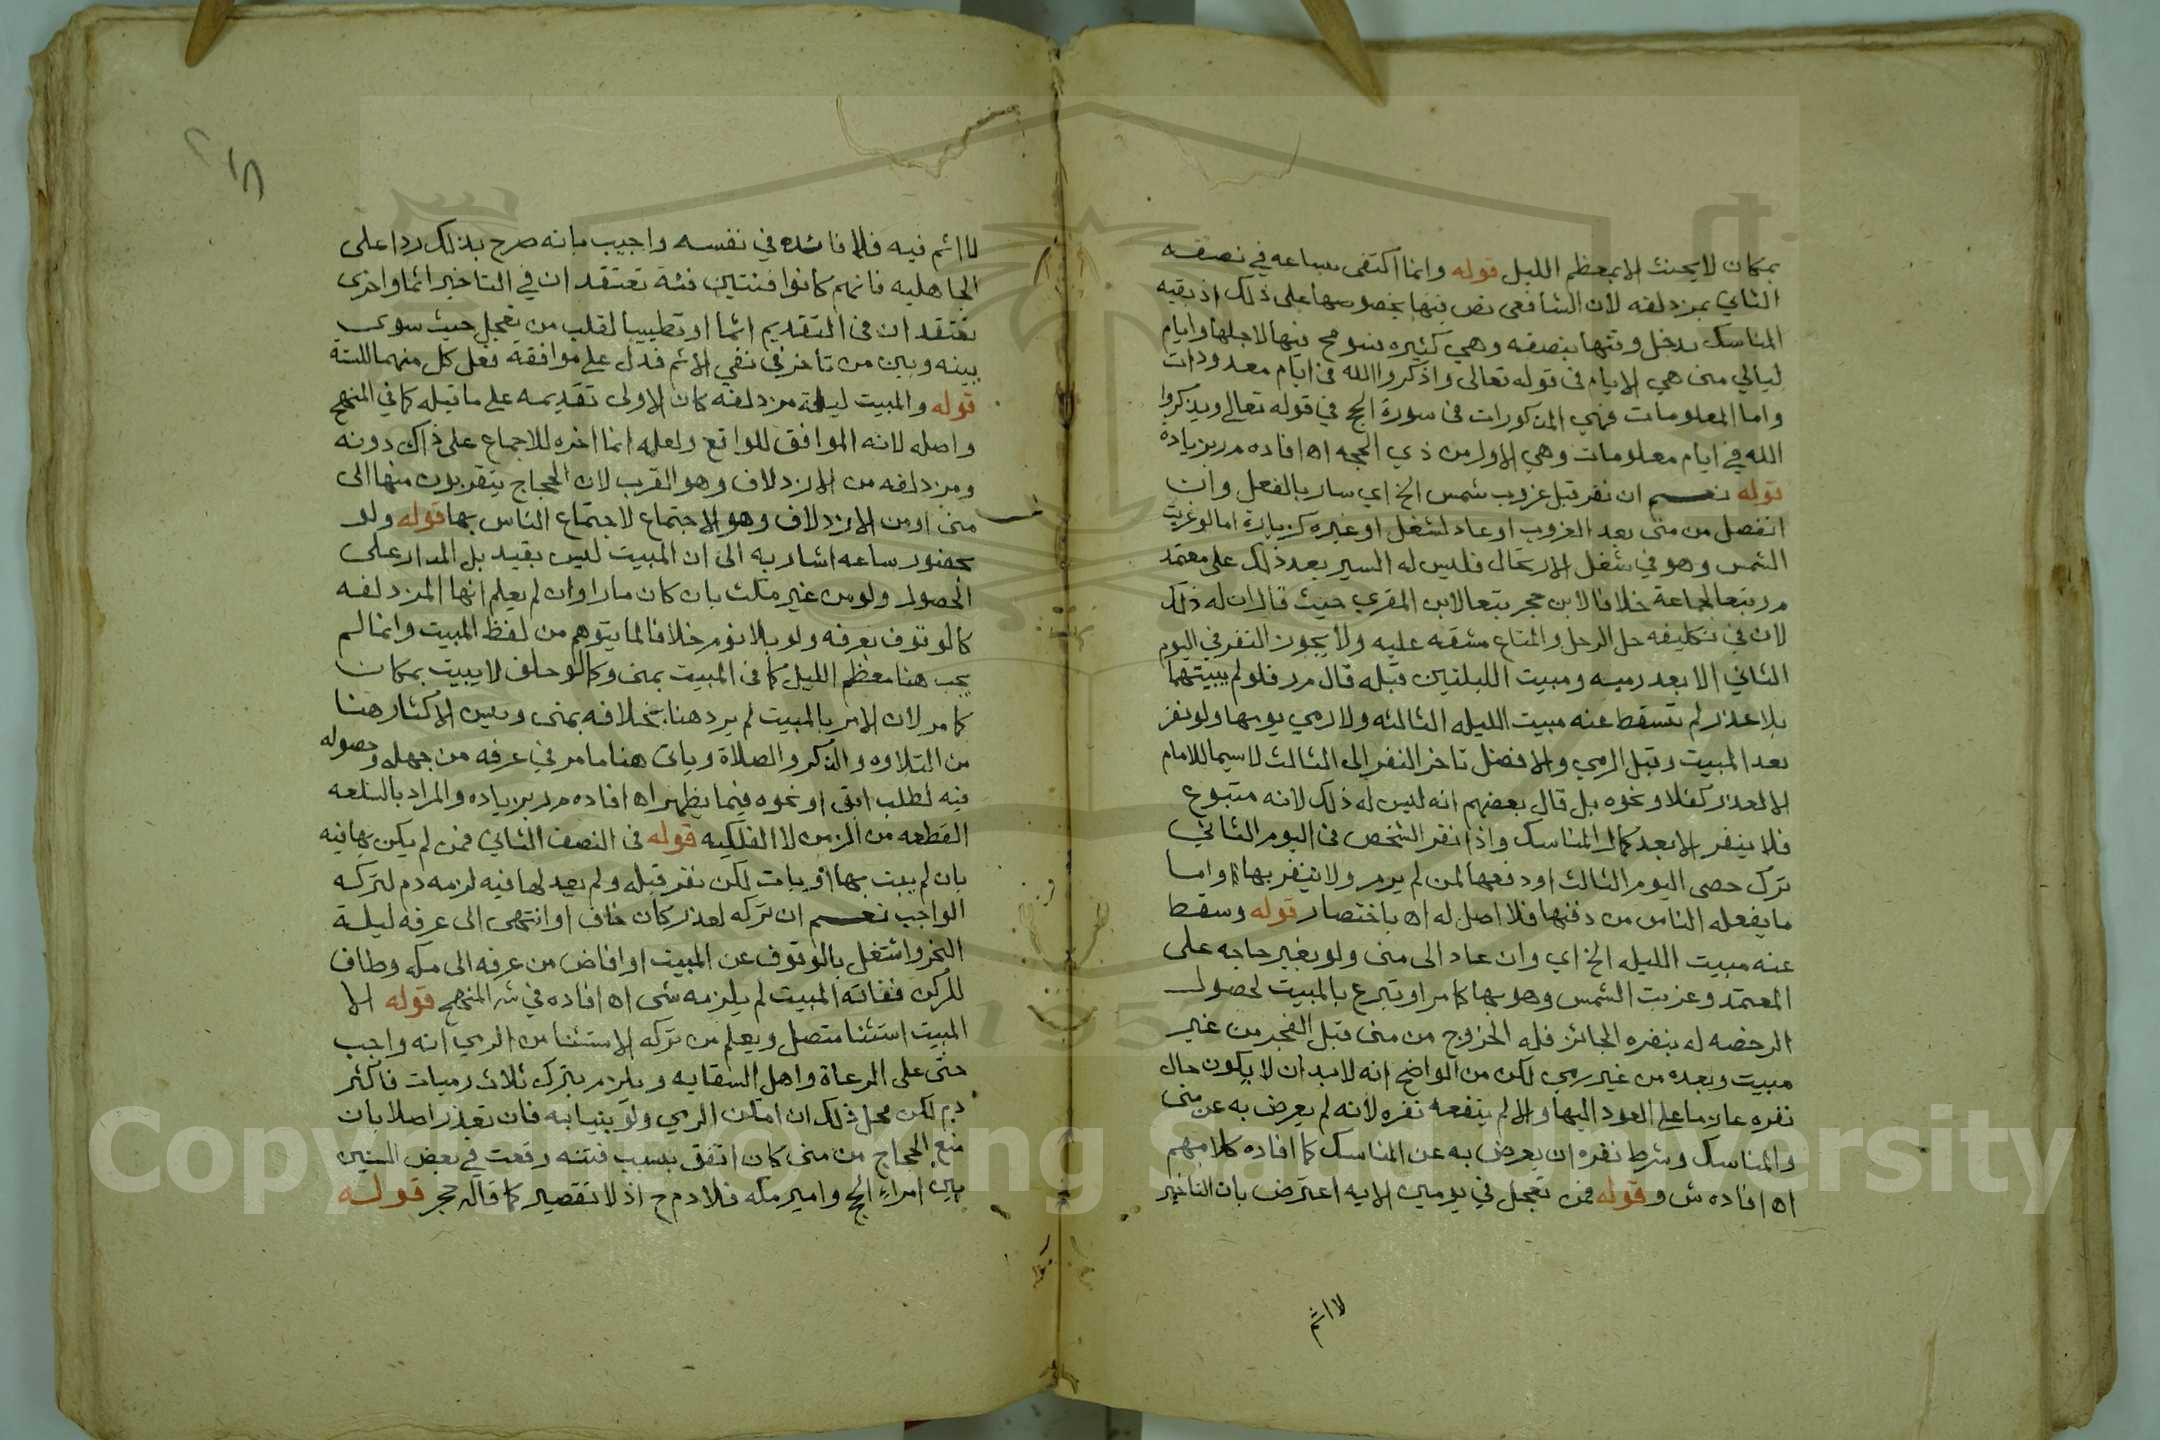 بمكان لا يحنث الا بمعظم الليل قوله وانما اكتفى بساعه في نصفه
الثاني بمزدلفه لان الشافعى نص فيها بخصوصها على ذلك اذ بقيه
المناسك يدخل وقتها بنصفه وهي كثيره فسومح فيها لاجلها وايام
ليالي منى هي الايام فى قوله تعالى واذكروا الله فى ايام معدودات
واما المعلومات فهي المذكورات فى سورة الحج في قوله تعالى ويذكروا
الله في ايام معلومات وهي الاول من ذي الحجه اه افاده م ر بزياده
قوله نعم ان نفر قبل غروب شمس الخ اي سار بالفعل وان
انفصل من منى بعد الغروب او عاد لشغل او غيره كزيارة اما لو غربت
الشمس وهو في شغل الارتحال فليس له السير بعد ذلك على معتمد
م ر تبعا لجماعة خلافا لابن حجر تبعا لابن المقري حيث قالا ان له ذلك
لان في تكليفه حل الرحل والمتاع مشقه عليه ولا يجوز النفر في اليوم
الثاني الا بعد رميه ومبيت الليلتين قبله قال م ر فلو لم يبيتهما
بلا عذر لم تسقط عنه مبيت الليله الثالثه ولا رمي يومها ولو نفر
بعد المبيت وقبل الرمي والافضل تاخر النفر الى الثالث لا سيما للامام
الا لعذر كغلا ونحوه بل قال بعضهم انه ليس له ذلك لانه متبوع
فلا ينفر الا بعد كمال المناسك واذا نفر الشخص فى اليوم الثاني
ترك حصى اليوم الثالث او دفعها لمن لم يرم ولا ينفر بها واما
ما يفعله الناس من دفنها فلا اصل له اه باختصار قوله وسقط
عنه مبيت الليله الخ اي وان عاد الى منى ولو بغير حاجه على
المعتمد وغربت الشمس وهو بها كما مر او تبرع بالمبيت لحصول
الرخصه له بنفره الجائز فله الخروج من منى قبل الفجر من غير
مبيت وبعده من غير رمي لكن من الواضح انه لابد ان لا يكون حال
نفره عازما على العود اليها والا لم ينفعه نفره لانه لم يعرض به عن منى
والمناسك وشرط نفره ان يعرض به عن المناسك كما افاده كلامهم
اه افاده ش و قوله فمن تعجل في يومين الايه اعترض بان التاخير
لا اثم
لا اثم فيه فلا فائده في نفسه واجيب بانه صرح بذلك ردا على
الجاهليه فانهم كانوا فئتين فئة تعتقد ان في التاخير اثما واخرى
تعتقد ان فى التقديم اثما او تطييبا لقلب من تعجل حيث سوى
بينه وبين من تأخر في نفي الاثم فدل على موافقة فعل كل منهما للسنة
قوله والمبيت ليلة مزدلفه كان الاولى تقديمه على ما قبله كما في المنهج
واصله لانه الموافق للواقع ولعله انما اخره للاجماع على ذاك دونه
ومزدلفه من الازدلاف وهو القرب لان الحجاج يتقربون منها الى
منى او من الازدلاف وهو الاجتماع لاجتماع الناس بها قوله ولو
بحضور ساعه اشار به الى ان المبيت ليس بقيد بل المدار على
الحصول ولو من غير مكث بان كان مارا وان لم يعلم انها المزدلفه
كالوقوف بعرفه ولو بلا نوم خلافا لما يتوهم من لفظ المبيت وانما لم
يجب هنا معظم الليل كما فى المبيت بمنى وكما لو حلف لا يبيت بمكان
كما مر لان الامر بالمبيت لم يرد هنا بخلافه بمنى ويسن الاكثار هنا
من التلاوه والذكر والصلاة وياتى هنا ما مر في عرفه من جهله وحصوله
فيه لطلب ابق او نحوه فيما يظهر اه افاده م ر بزياده والمراد بالساعه
القطعه من الزمن لا الفلكيه قوله فى النصف الثاني فمن لم يكن بها فيه
بان لم يبت بها او بات لكن نفر قبله ولم يعد لها فيه لزمه دم لتركه
الواجب نعم ان تركه لعذر كان خاف او انتهى الى عرفه ليلة
النحر واشتغل بالوقوف عن المبيت او افاض من عرفه الى مكه وطاف
للركن ففاته المبيت لم يلزمه شى اه افاده في ش المنهج قوله الا
المبيت استثنا متصل ويعلم من تركه الاستثنا من الرمي انه واجب
حتى على الرعاة واهل السقايه ويلزم بترك ثلاث رميات فاكثر
دم لكن محل ذلك ان امكن الرمي ولو بنيابه فان تعذر اصلا بان
منع الحجاج من منى كان اتفق بسبب فتنه وقعت في بعض السنين
بين امراء الحج وامير مكه فلا دم ح اذ لا تقصير كما قاله حجر قوله